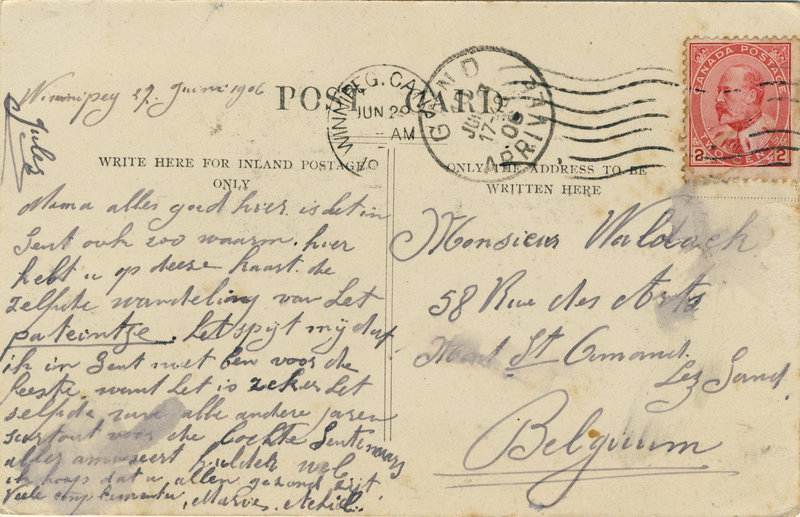 Winnipeg 29 Juini 1906
Jules
POST CARD
WINNIPEG. CANADA
JUN 29
AM
GAND
17-
08
ARRIV
CANADA POSTAGE
2 TWO CENTS 2
WRITE HERE FOR INLAND POSTAGE
ONLY
ONLY THE ADDRESS TO BE
WRITTEN HERE
Mama alles goed hier. is let in
Gent ook zoo waarm. hier
hebt u op deeze kaart. de
zelfde wandeling van Let
pateintje. Let spijt mij dat
ik in Gent niet ben voor de
feeste want Let is zeker Let
selfde van alle andere jaren
surtout voor de Gentenaars
alles amuseert hulder wel
ik hoop dat u allen gezond zijt
Veele complimenten, Achiel.
Monsieur Walback
58 Rue des Arts
Mont St Amand.
Lez Gand
Belgium